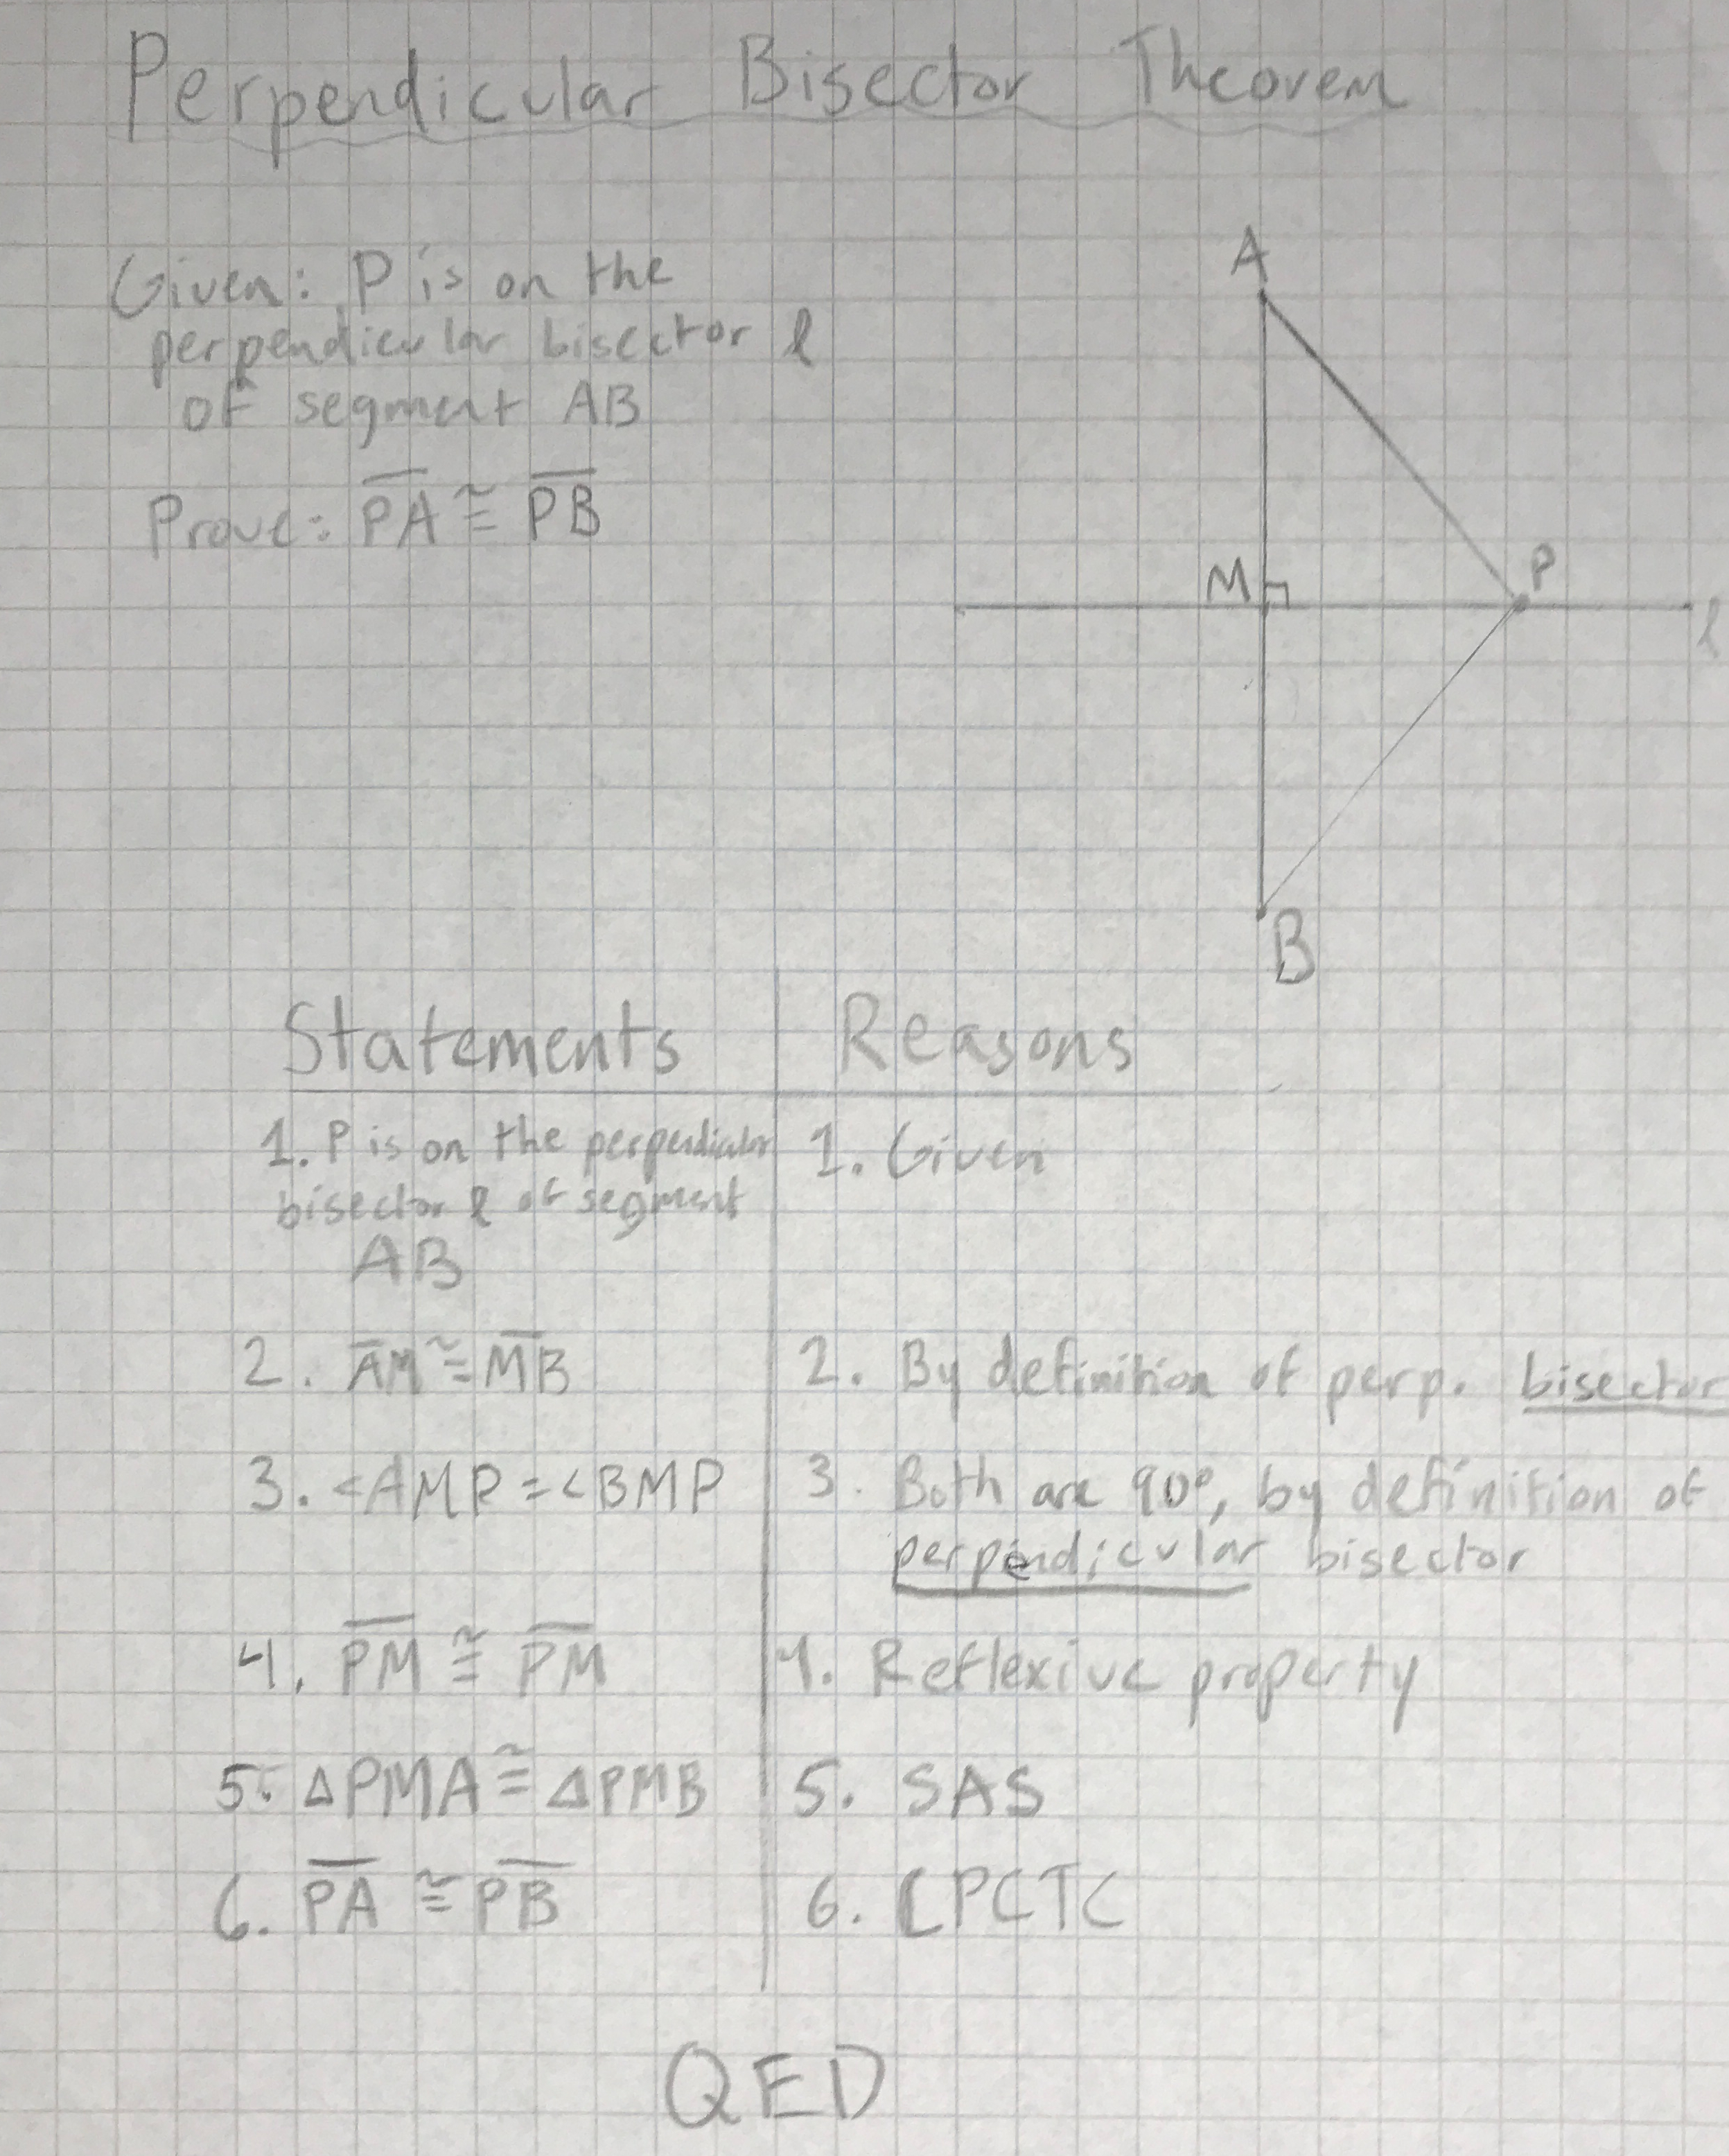 Perpendicular Bisector Theorem
Given: P is on the
perpendicular bisector ℓ
of segment AB
Prove: P̅A̅ ≅ P̅B̅
A
M
P
ℓ
B
Statements
Reasons
1. P is on the perpendicular
bisector ℓ of segment
AB
1. Given
2. A̅M̅ ≅ M̅B̅
2. By definition of perp. bisector
3. <AMP = <BMP
3. Both are 90°, by definition of
perpendicular bisector
4. P̅M̅ ≅ P̅M̅
4. Reflexive property
5. △PMA ≅ △PMB
5. SAS
6. P̅A̅ ≅ P̅B̅
6. CPCTC
QED